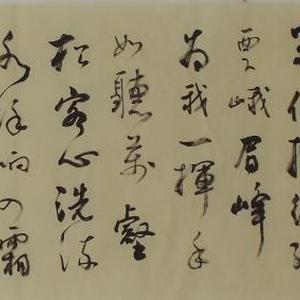 僧抱綠
西下峨眉峰
为我一揮手
如聽萬壑
松客心洗流
水餘响入霜